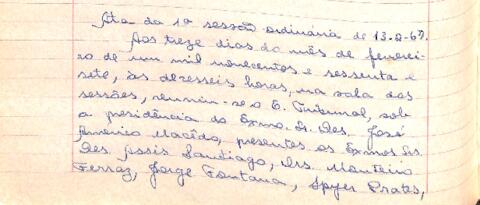 Ata da 1ª sessão ordinária de 13-2-67.
Aos treze dias do mês de feverei-
ro de um mil novecentos e sessenta e
sete, às dezesseis horas, na sala das
sessões, reuniu-se o E. Tribunal, sob
a presidência do Exmo. Sr. Des. José
Américo Macêdo, presentes os Exmos. Srs.
Des. Assis Santiago, Drs. Monteiro
Ferraz, Jorge Fontana, Spyer Prates,